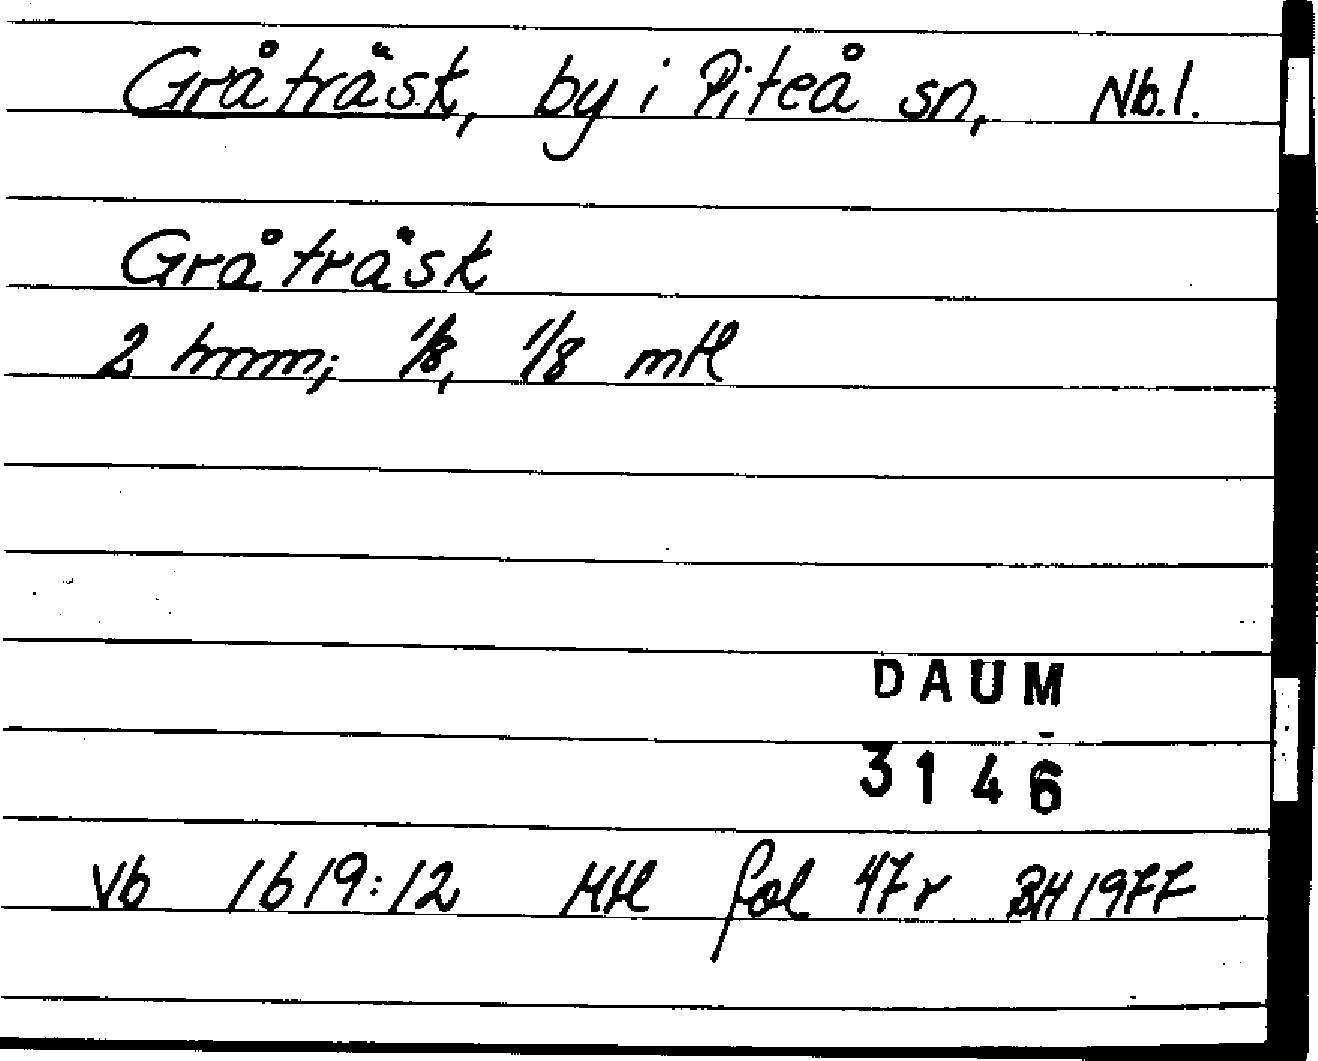 Gråträsk, by i Piteå sn, Nb.l.
Gråträsk
2 hmm; 1/8, 1/8 mtl
DAUM
3146
Vb 1619:12 Mtl fol 47r BH 1977